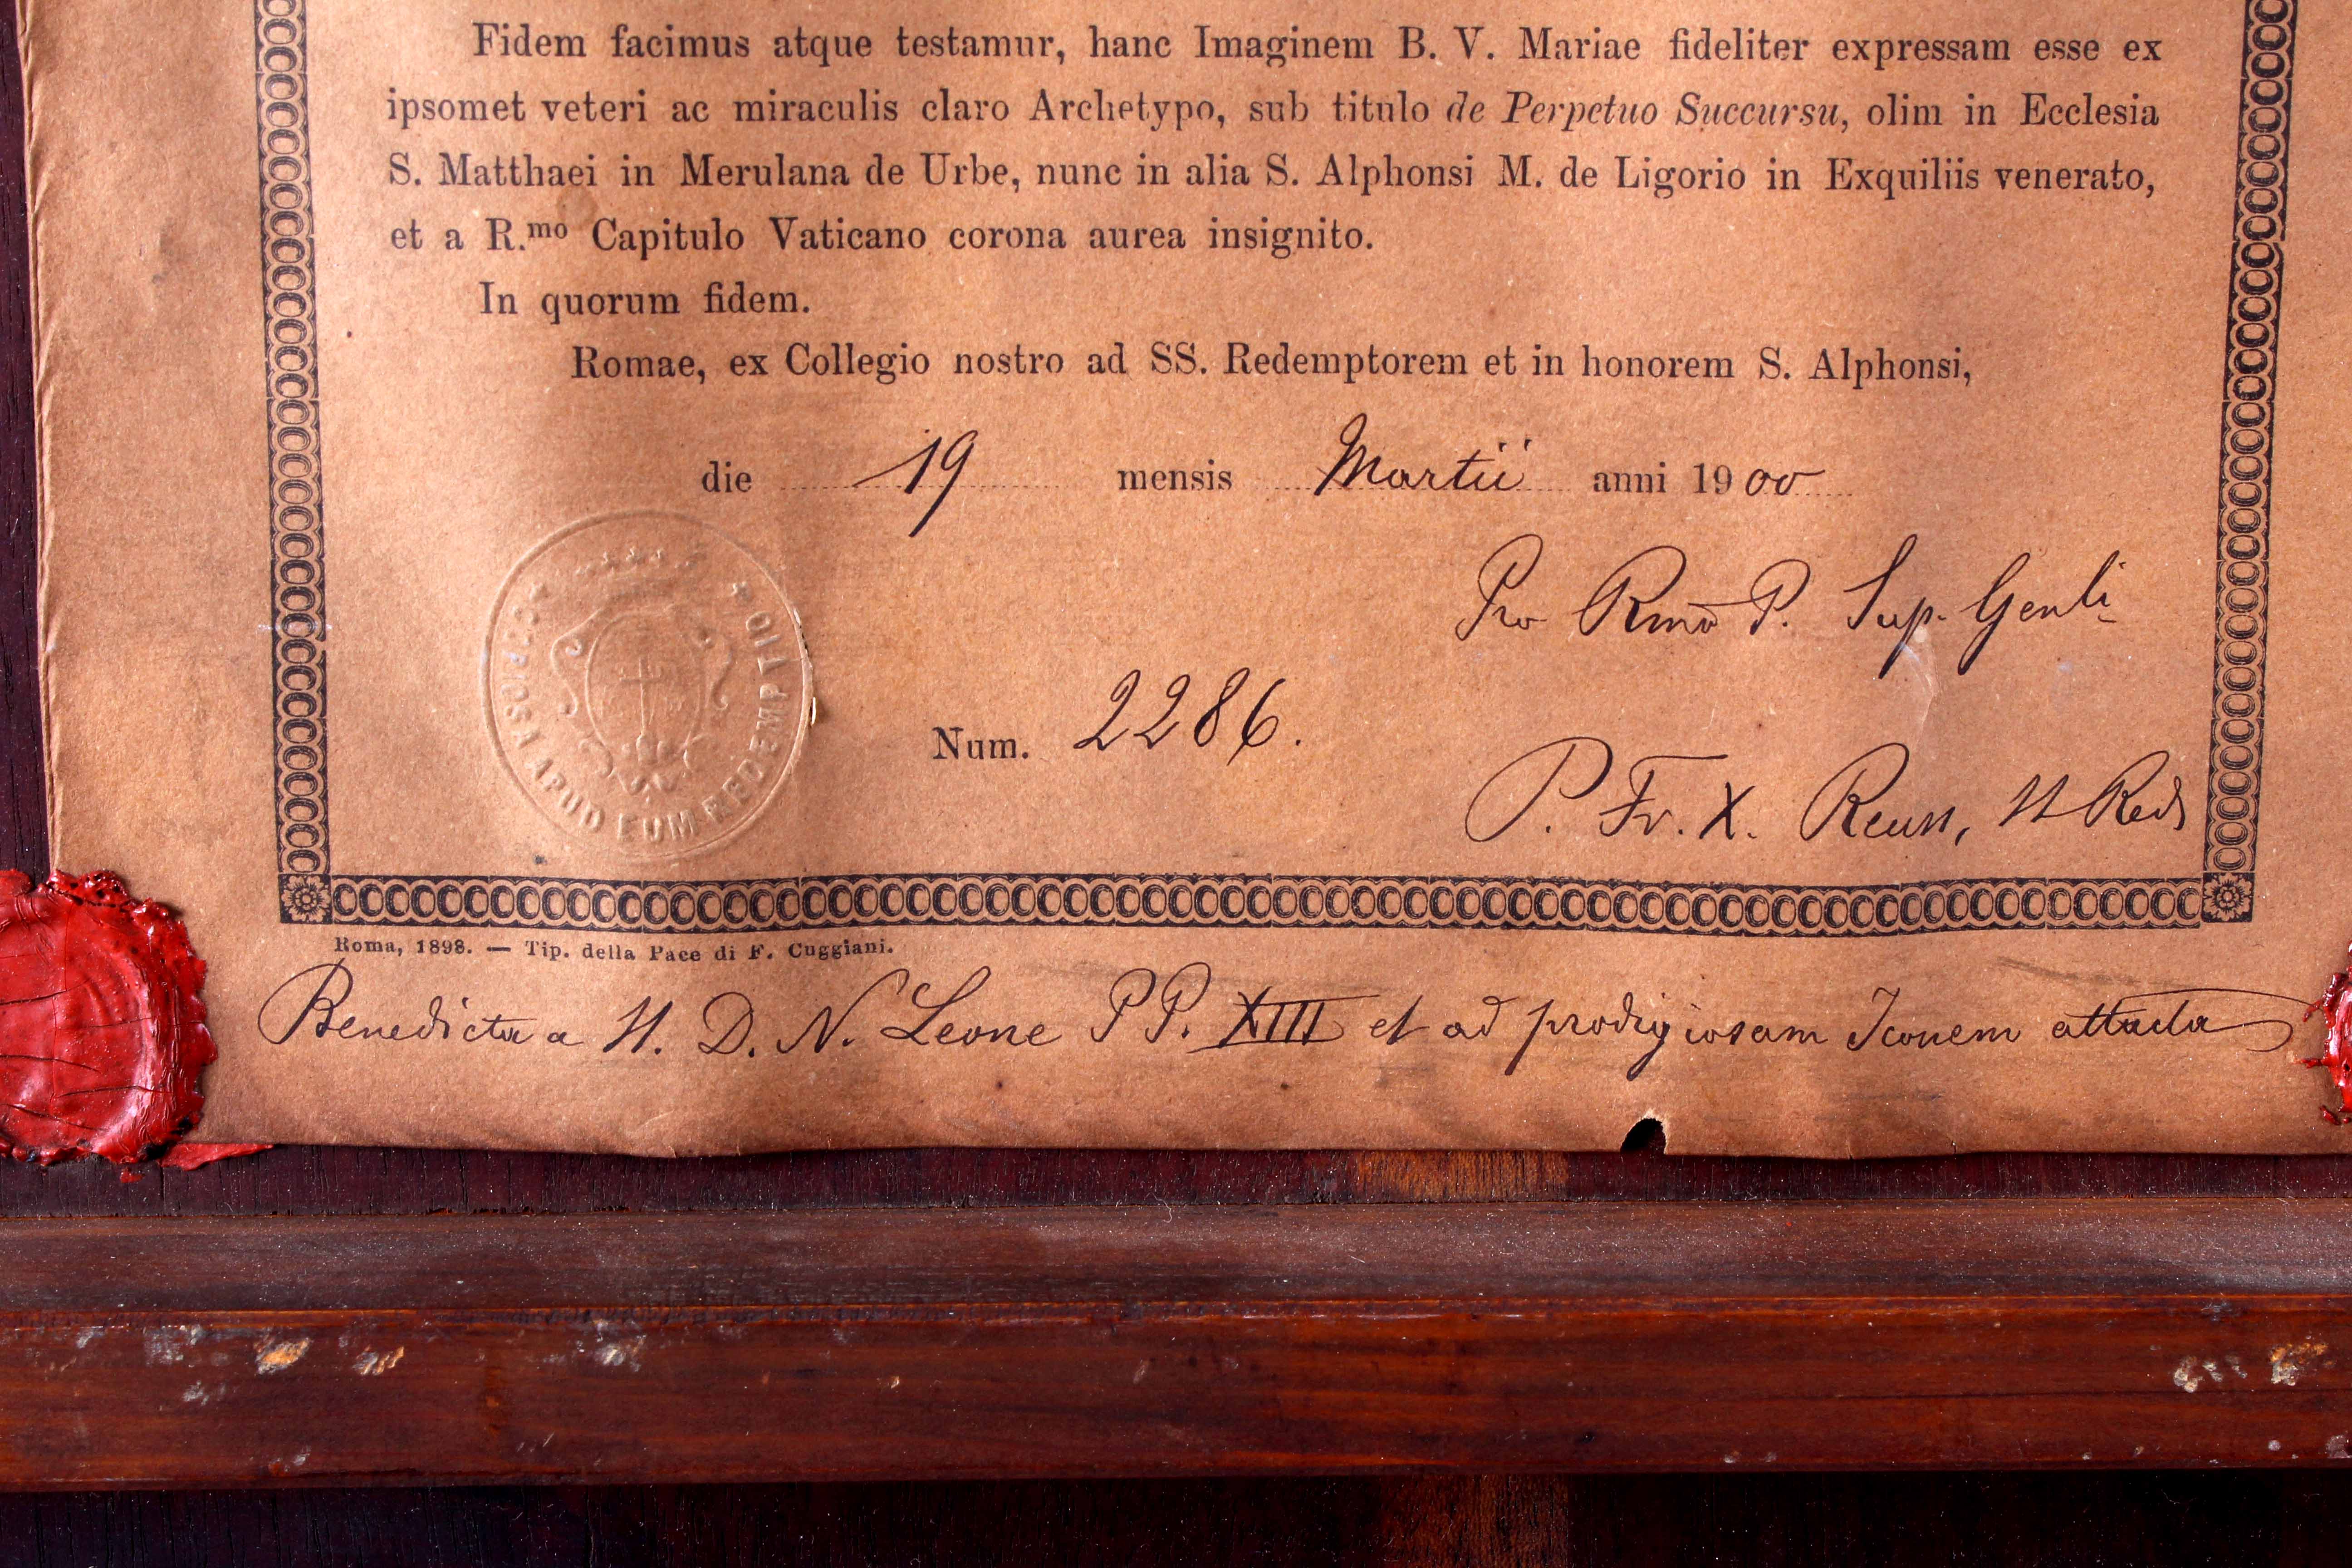 Fidem facimus atque testamur, hanc Imaginem B. V. Mariae fideliter expressam esse ex
ipsomet veteri ac miraculis claro Archetypo, sub titulo de Perpetuo Succursu, olim in Ecclesia
S. Matthaei in Merulana de Urbe, nunc in alia S. Alphonsi M. de Ligorio in Exquiliis venerato,
et a R.mo Capitulo Vaticano corona aurea insignito.
In quorum fidem.
Romae, ex Collegio nostro ad SS. Redemptorem et in honorem S. Alphonsi,
die 19 mensis Martii anni 1900
Pro Rmo P. Sup. Genli
COPIOSA APUD EUM REDEMPTIO
Num. 2286.
P. Fr. X. Reuss,
Roma, 1898. — Tip. della Pace di F. Cuggiani.
Benedicta a S. D. N. Leone PP. XIII et ad prodigiosam Iconem attacta